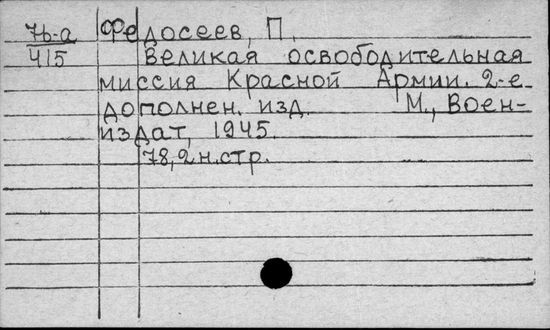 7б-а Федосеев, П.
415 Великая освободительная
миссия Красной Армии. 2-е
дополнен. изд. М., Воен-
издат, 1945.
78,2 н.стр.